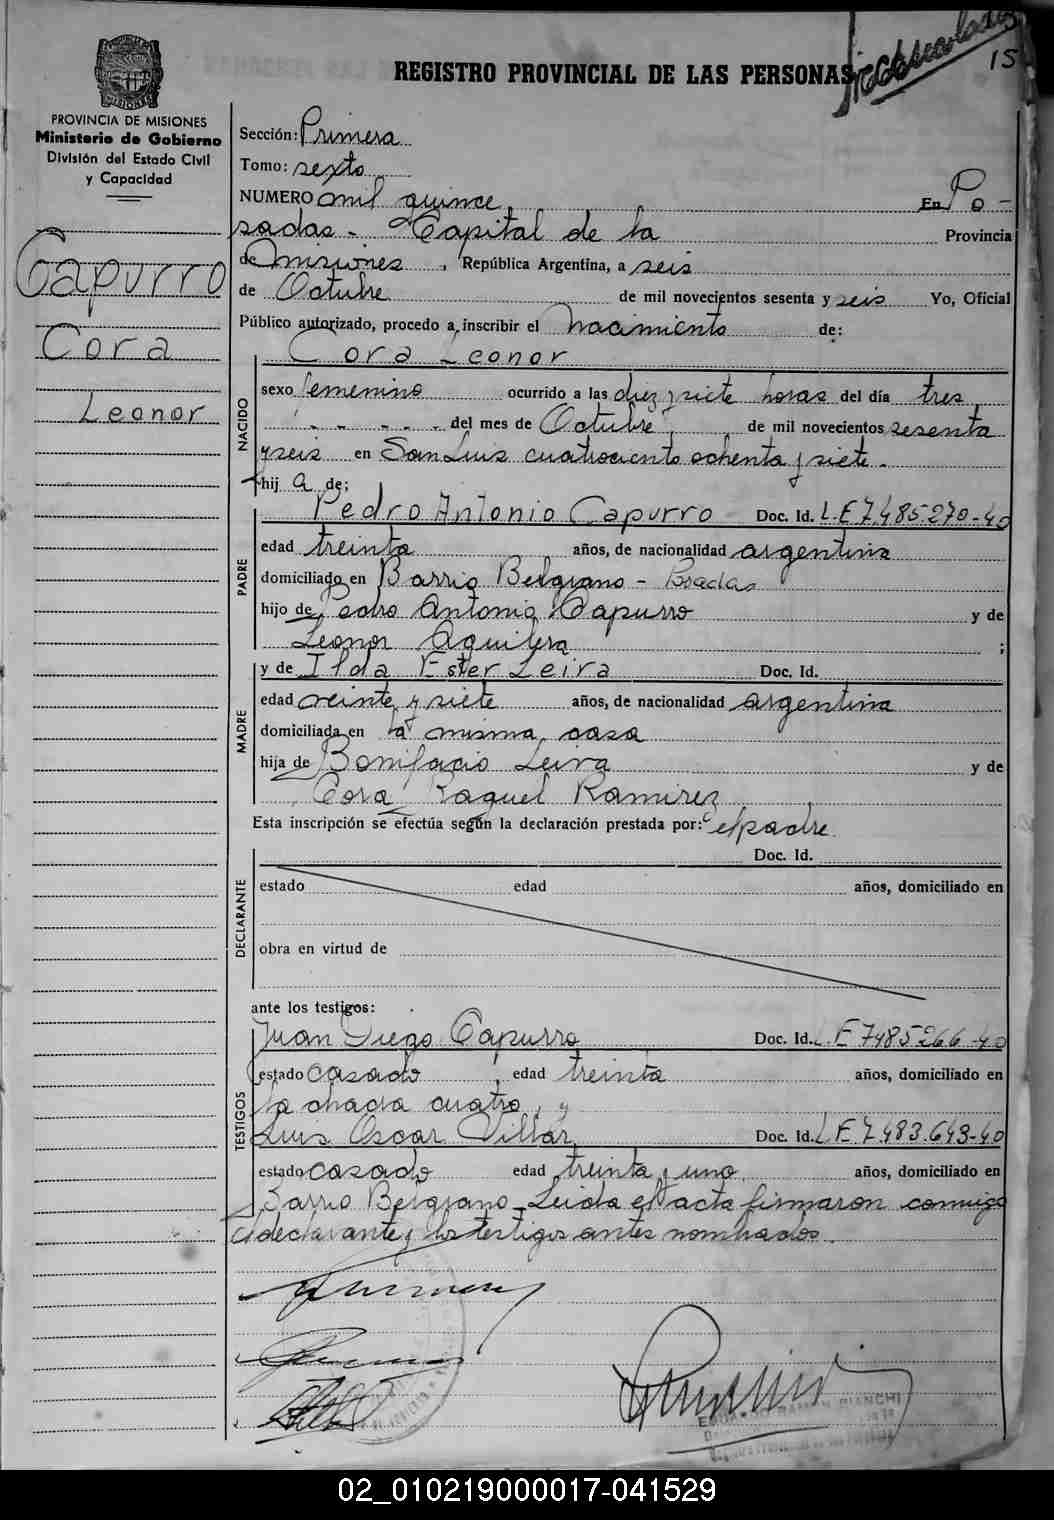 Matriculados
15
REGISTRO PROVINCIAL DE LAS PERSONAS
PROVINCIA DE MISIONES
Ministerio de Gobierno
División del Estado Civil
y Capacidad
Capurro
Cora
Leonor
Sección: Primera
Tomo: sexto
NUMERO mil quince En Po-
sadas - Capital de la Provincia
de Misiones, República Argentina, a seis
de Octubre de mil novecientos sesenta y seis Yo, Oficial
Público autorizado, procedo a inscribir el nacimiento de:
Cora Leonor
NACIDO
sexo femenino ocurrido a las diez y siete horas del día tres
- - - - - del mes de Octubre de mil novecientos sesenta
y seis en San Luis cuatrociento ochenta y siete.
hij a de:
PADRE
Pedro Antonio Capurro Doc. Id. L.E 7.485.270-40
edad treinta años, de nacionalidad argentina
domiciliado en Barrio Belgrano - Posadas
hijo de Pedro Antonio Capurro y de
Leonor Aguilera ;
MADRE
y de Ilda Ester Leiva Doc. Id.
edad veinte y siete años, de nacionalidad argentina
domiciliada en la misma casa
hija de Bonifacio Leiva y de
Cora Raquel Ramirez
Esta inscripción se efectúa según la declaración prestada por: el padre
DECLARANTE
Doc. Id.
estado edad años, domiciliado en
obra en virtud de
ante los testigos:
TESTIGOS
Juan Diego Capurro Doc. Id. L.E 7485266-40
estado casado edad treinta años, domiciliado en
la chacra cuatro, y
Luis Oscar Villar Doc. Id. L.E 7.483.643-40
estado casado edad treinta y uno años, domiciliado en
Barrio Belgrano. Leida el acta firmaron conmigo
el declarante y los testigos antes nombrados.
EDUARDO RAMON BIANCHI
02_010219000017-041529